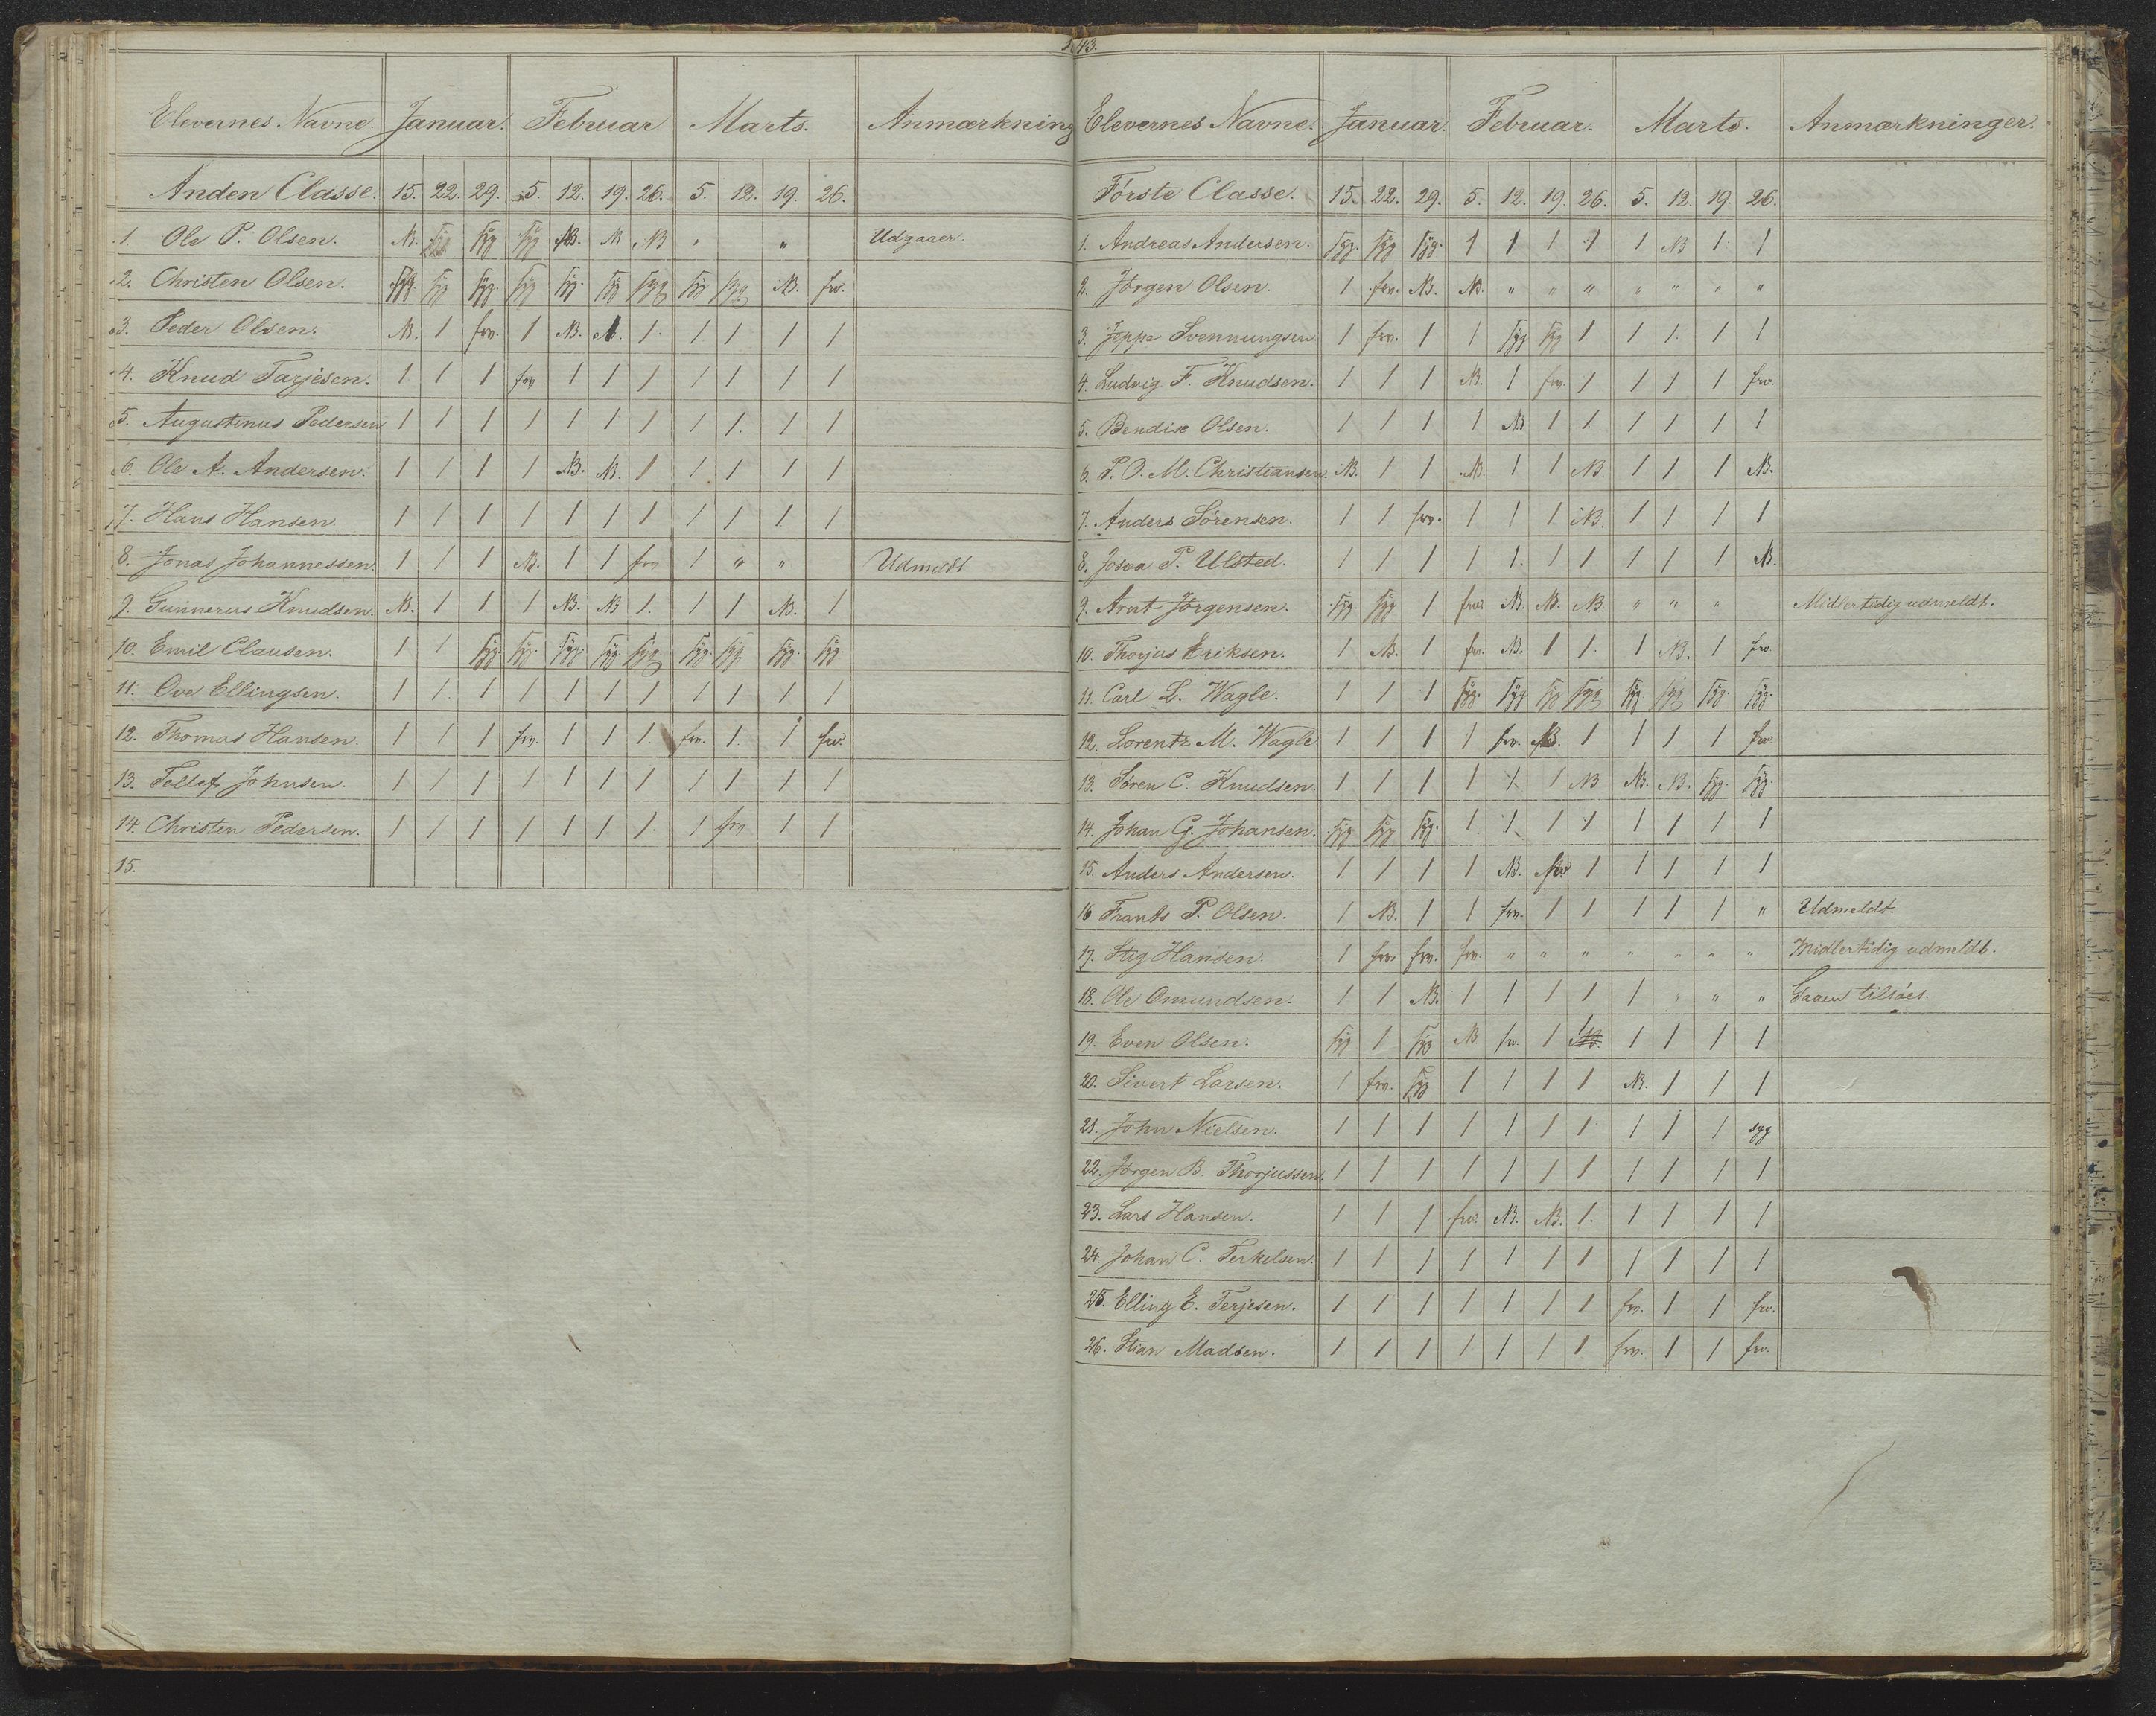 43.
Elevernes Navne. Januar. Februar. Marts. Anmærkning
Anden Classe. 15. 22. 29. 5. 12. 19. 26. 5. 12. 19. 26.
1. Ole P. Olsen. NB. syg syg syg NB. NB NB " " Udgaaer.
2. Christen Olsen. syg. syg syg. syg syg. syg syg syg syg NB. frv.
3. Peder Olsen. NB. 1 frv. 1 NB. 1 1 1 1 1
4. Knud Tarjesen. 1 1 1 frv 1 1 1 1 1 1 1
5. Augustinus Pedersen 1 1 1 1 1 1 1 1 1. 1 1
6. Ole A. Andersen. 1 1 1 1 NB. NB. 1 1 1 1 1
7. Hans Hansen 1 1 1 1 1 1 1 1 1 1 1
8. Jonas Johannessen. 1 1 1 NB. 1 1 frv 1 " " Udmeldt
9. Gunnerus Knudsen. NB. 1 1 1 NB. NB 1. 1 1 NB. 1
10. Emil Clausen. 1 1 syg. syg. syg. syg. syg. syg. syg. syg. syg.
11. Ove Ellingsen. 1 1. 1 1 1 1 1 1 1 1 1
12. Thomas Hansen. 1 1 1 frv. 1 1 1. frv. 1. 1 frv.
13. Tellef Johnsen. 1 1 1 1 1 1 1 1 1 1 1
14. Christen Pedersen. 1 1 1 1 1 1 1. 1 frv 1 1
15.
Elevernes Navne. Januar. Februar. Marts. Anmærkninger.
Første Classe. 15. 22. 29. 5. 12. 19. 26. 5. 12. 19. 26.
1. Andreas Andersen. syg. syg syg. 1 1 1 1 1 NB 1 1
2. Jörgen Olsen. 1 frv. NB. NB. " " " " " " "
3. Jeppe Svennungsen 1 frv. 1 1 syg syg 1 1 1. 1 1
4. Ludvig F. Knudsen. 1 1 1 NB. 1 frv. 1 1 1 1 frv.
5. Bendix Olsen. 1 1 1 1 NB 1 1 1 1 1 1
6. P. O. M. Christiansen. NB. 1 1 NB. 1 1 NB. 1 1 1 NB.
7. Anders Sörensen. 1 1 frv. 1 1 1 NB. 1 1 1 1
8. Josva P. Ulsted. 1 1 1 1 1. 1 1 1 1 1 NB.
9. Arnt Jörgensen. syg. syg 1 frv. NB. NB. NB. " " " Midlertidig udmeldt.
10. Thorjus Eriksen. 1 NB. 1 frv. NB. 1 1. 1 NB. 1 frv.
11. Carl L. Wagle. 1 1 1 syg. syg. syg syg syg syg syg. syg.
12. Lorentz M. Wagle 1 1 1 1 frv. NB. 1 1 1 1 frv.
13. Søren C. Knudsen. 1 1 1 1 1 1 NB NB. NB. syg. syg.
14. Johan G. Johansen. syg syg syg. 1 1 1 1 1 1 1 1
15. Anders Andersen. 1 1 1 1 NB. 1 1 1 1 1
16. Frants P. Olsen. 1 NB. 1 1 frv. 1 1 1 1 1 " Udmeldt.
17. Stig Hansen. 1 frv. frv. frv. " " " " " " " Midlertidig udmeldt.
18. Ole Omundsen. 1 1 NB. 1 1 1 1 1 " " " Gaaen tilsöes.
19. Even Olsen. syg 1 syg NB. frv. 1 1 1 1 1 1
20. Sivert Larsen. 1 frv. syg 1 1 1 1 NB. 1 1 1
21. John Nielsen. 1 1 1 1 1 1 1 1 1 1 syg
22. Jørgen B. Thorjussen. 1 1 1 1 1 1 1 1 1 1 1
23. Lars Hansen. 1 1 1 frv. NB. NB. 1. 1 1 1 1
24. Johan C. Terkelsen. 1 1 1 1 1 1 1 1 1 1 1
25. Elling E. Terjesen. 1 1 1 1 1 1 1 frv. 1 1 frv.
26. Stian Madsen. 1 1 1 1 1 1 1 frv. 1 1 frv.